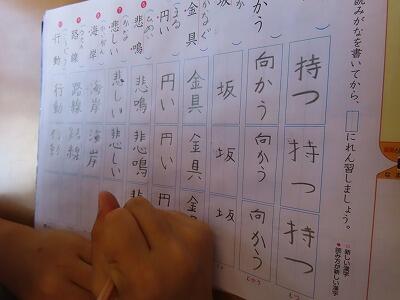 読みがなを書いてから、
にれん習しましょう。
新しい漢字
読み方が新しい漢字
持つ
持つ
持つ
かう
向かう
向かう
向かう
坂
坂
坂
金具
金具
金具
金
い
円い
円い
悲鳴
悲鳴
悲鳴
悲しい
悲しい
悲しい
海岸
海岸
海岸
路線
路線
路線
行動
行動
行動